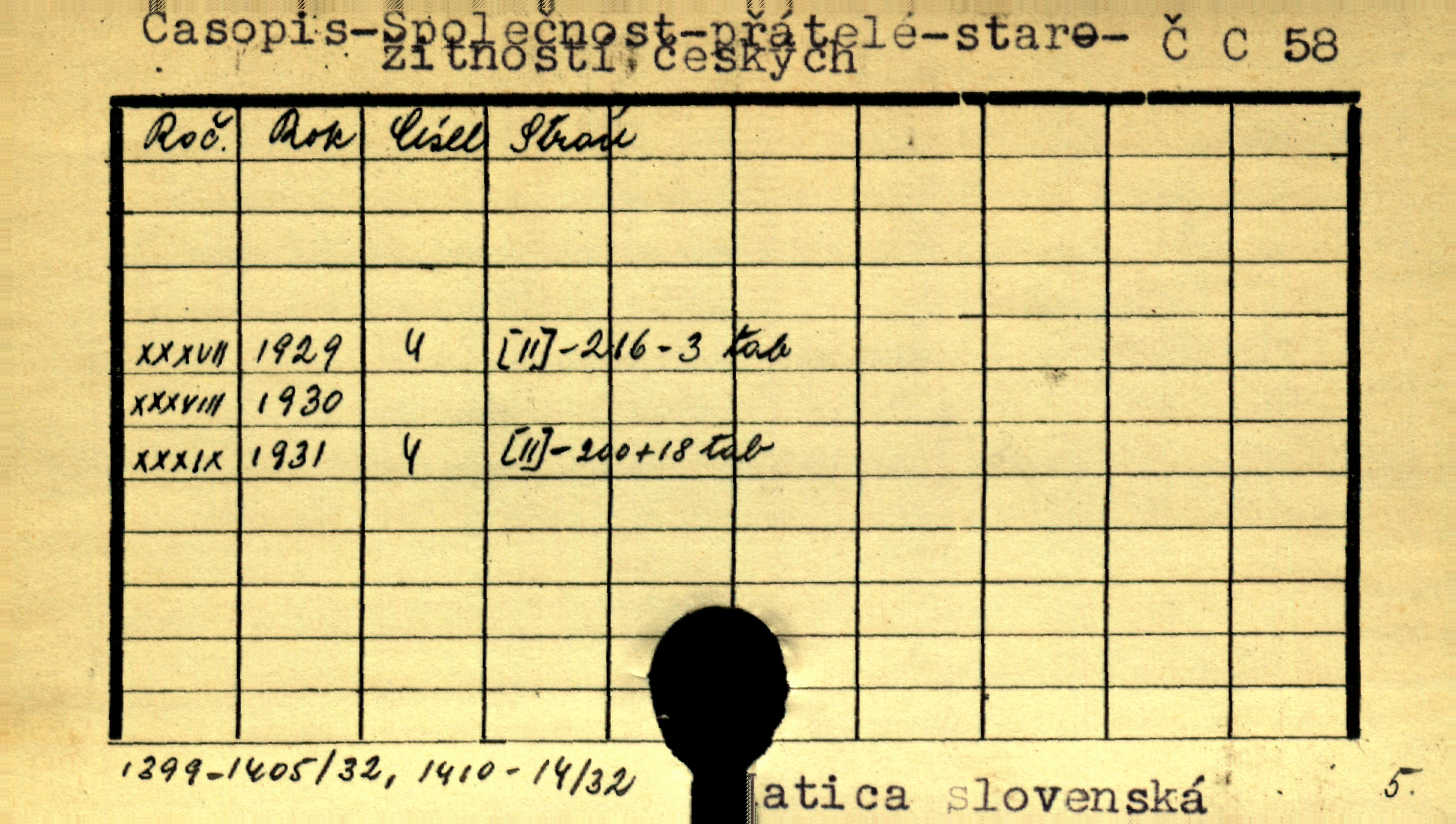 Časopis-Společnost-přátelé-staro- Č C 58
žitností českých
Roč. Rok Čísel Stran
XXXVII 1929 4 [II]-216-3 tab
XXXVIII 1930
XXXIX 1931 4 [II]-200+18 tab
1399-1405/32, 1410-14/32
atica slovenská 5.